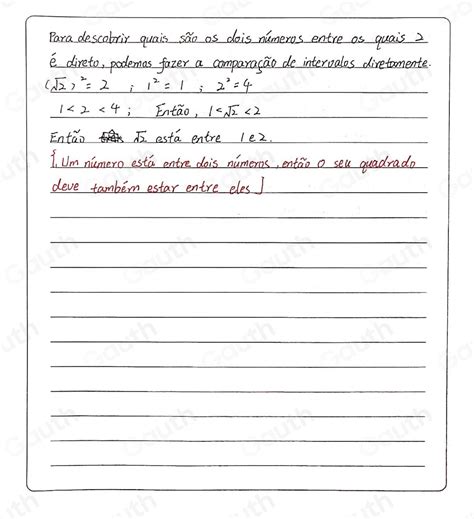 Para descobrir quais são os dois números entre os quais 2
é direto, podemos fazer a comparação de intervalos diretamente.
(√2)² = 2 ; 1² = 1 ; 2² = 4
1 < 2 < 4 ; Então, 1 < √2 < 2
Então √2 está entre 1 e 2.
[Um número está entre dois números, então o seu quadrado
deve também estar entre eles]
Gauth